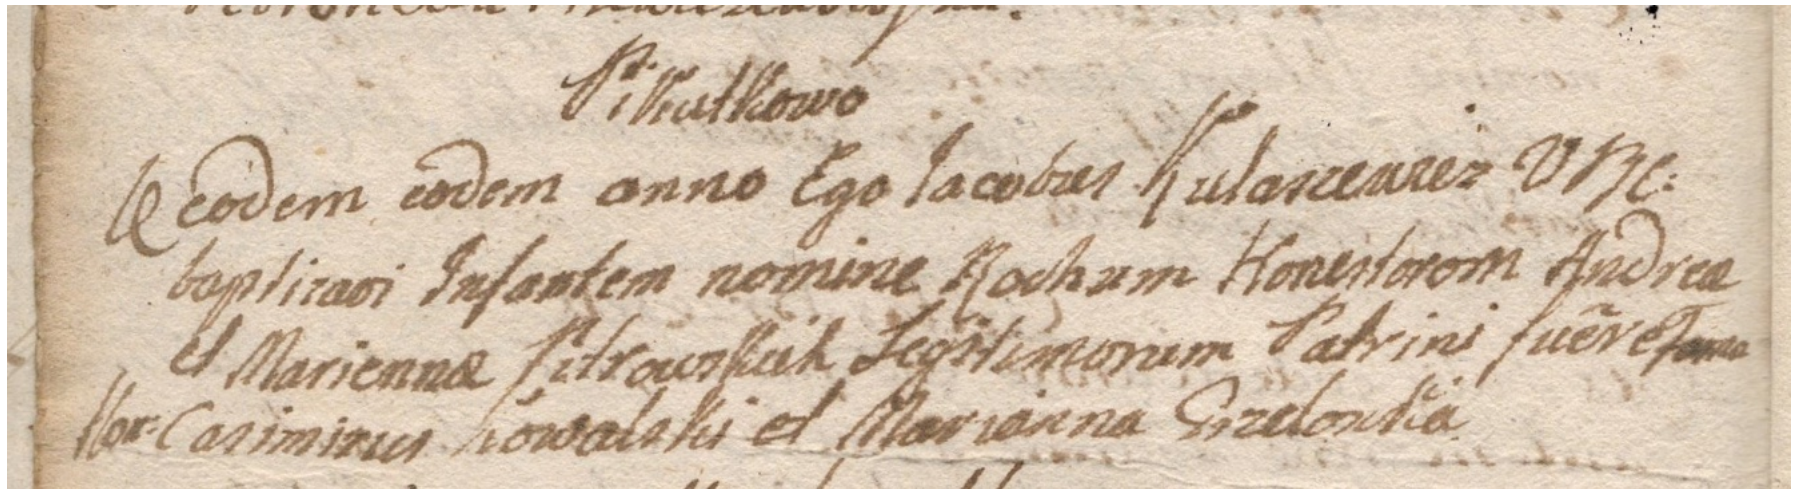 Pikutkowo
Eodem eodem anno Ego Jacobus Kulascewicz V Re:
baptizavi Infantem nomine Rochum Honestorom Andreæ
et Mariennæ Legitimorum Patrini fuēre
Hon: Casimirus Kowalski et Marianna